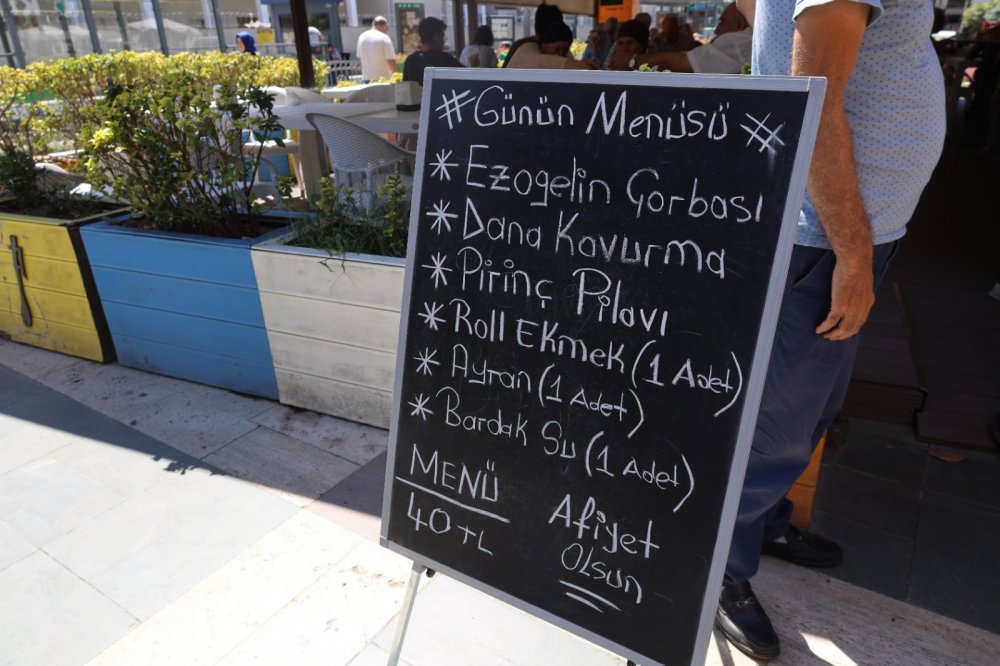 # Günün Menüsü #
* Ezogelin Çorbası
* Dana Kavurma
* Pirinç Pilavı
* Roll Ekmek (1 Adet)
* Ayran (1 Adet)
* Bardak Su (1 Adet)
MENÜ
40 TL
Afiyet
Olsun